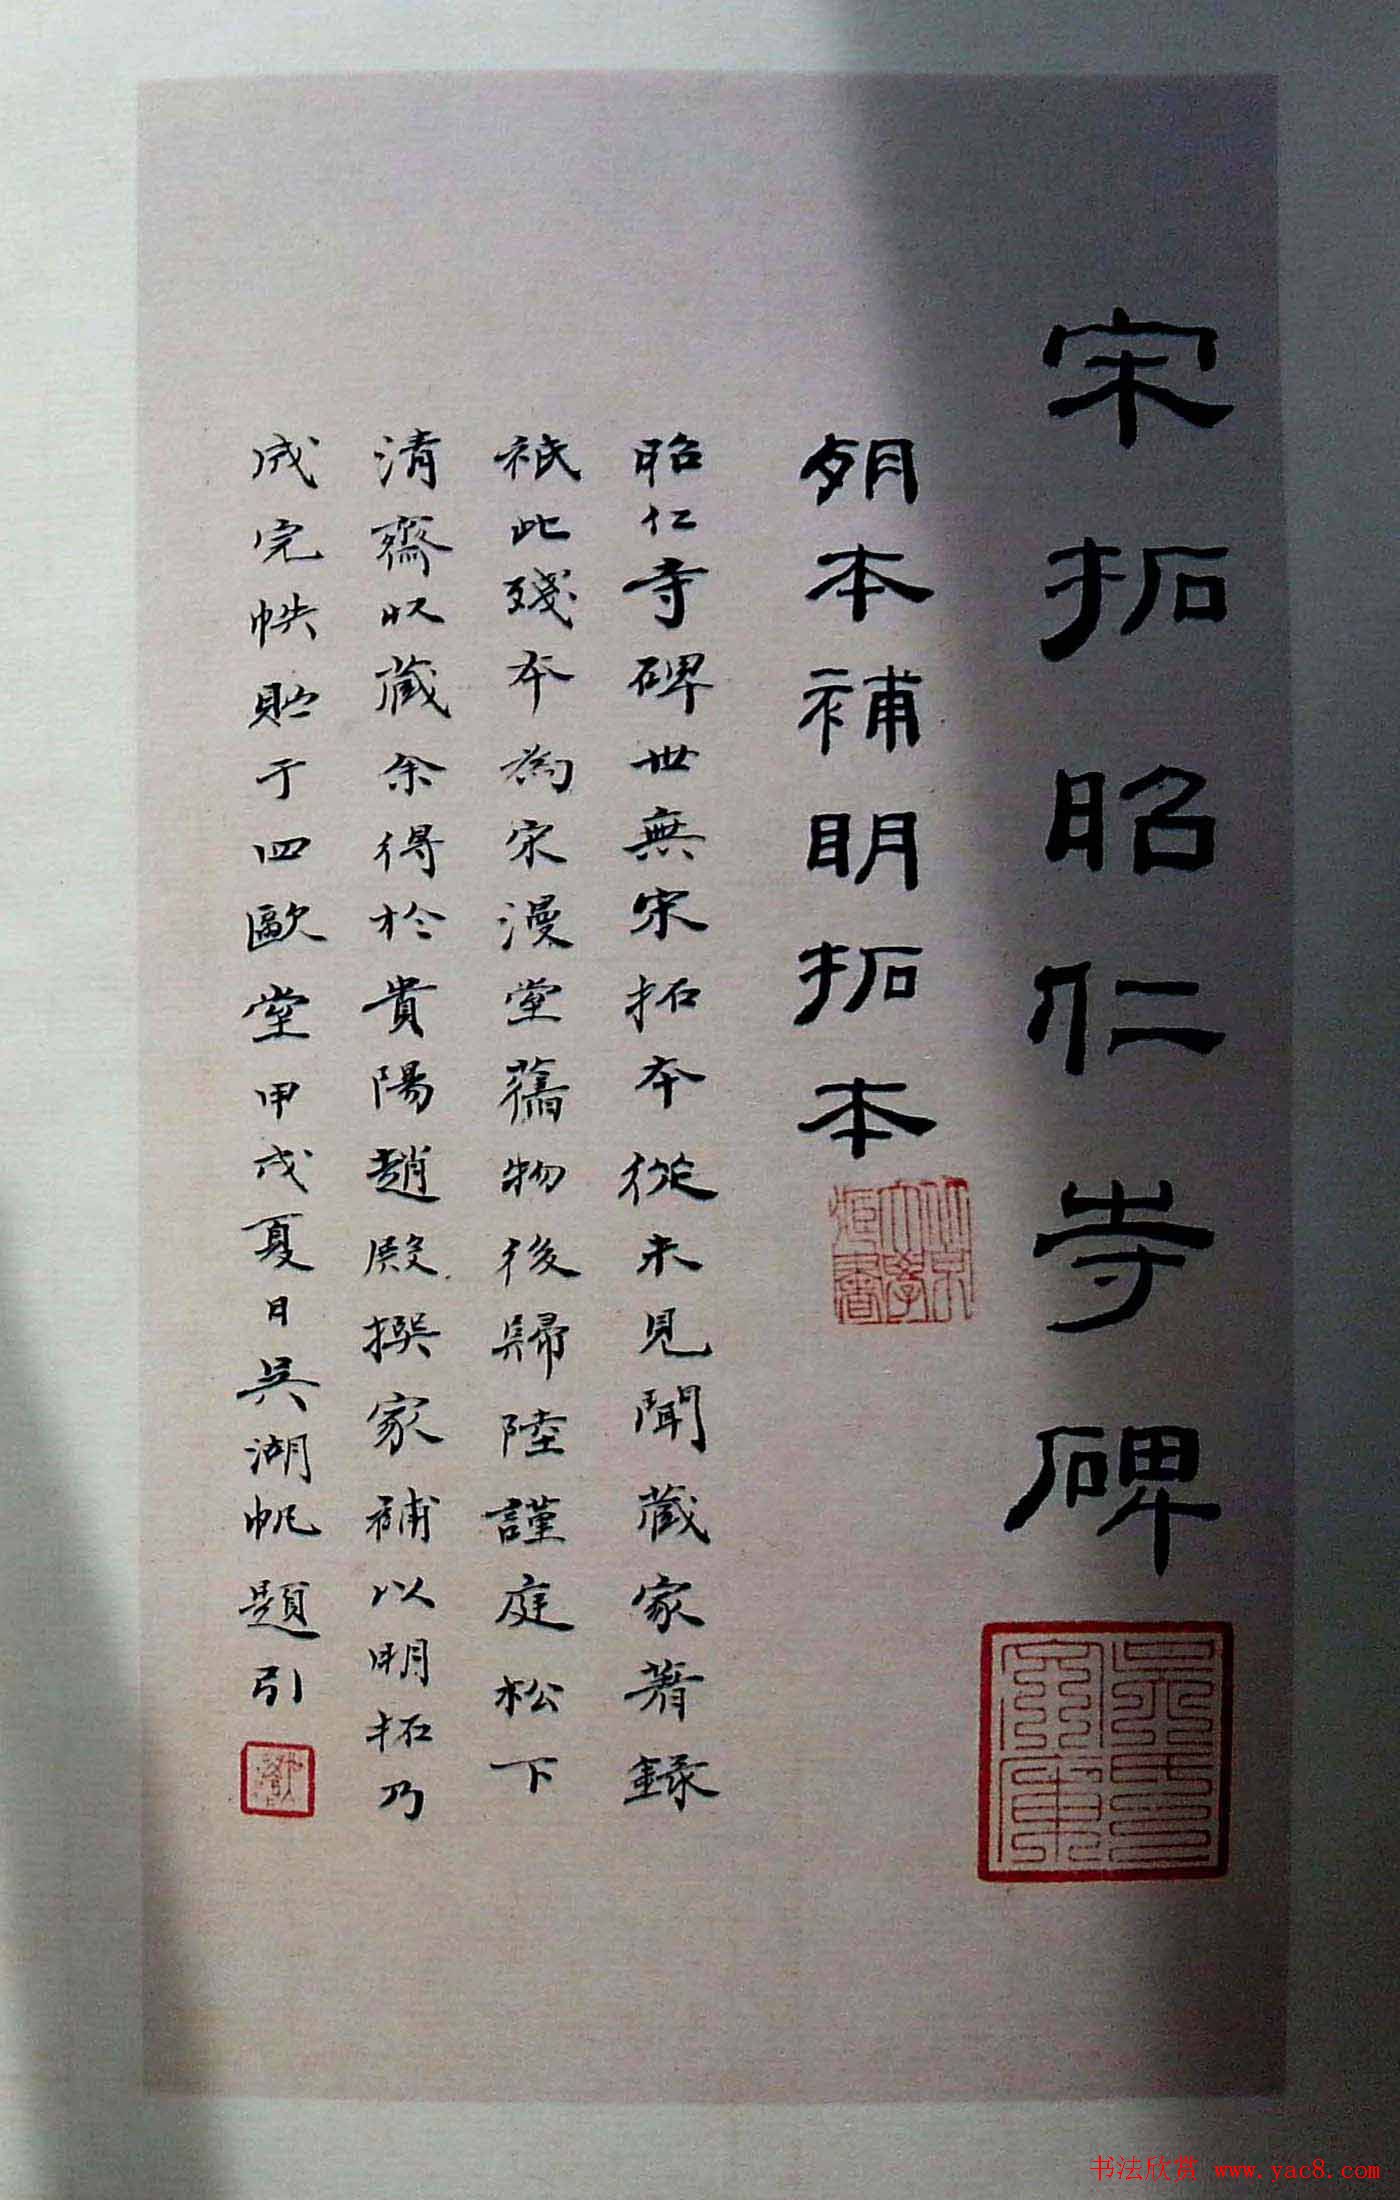 宋拓昭仁寺碑
闕本補明拓本
昭仁寺碑世無宋拓本從未見聞藏家著錄
祇此殘本為宋漫堂舊物後歸陸謹庭松下
清齋收藏余得於貴陽趙殿撰家補以明拓乃
成完帙貯于四歐堂甲戌夏日吳湖帆題引
书法欣赏 www.yac8.com